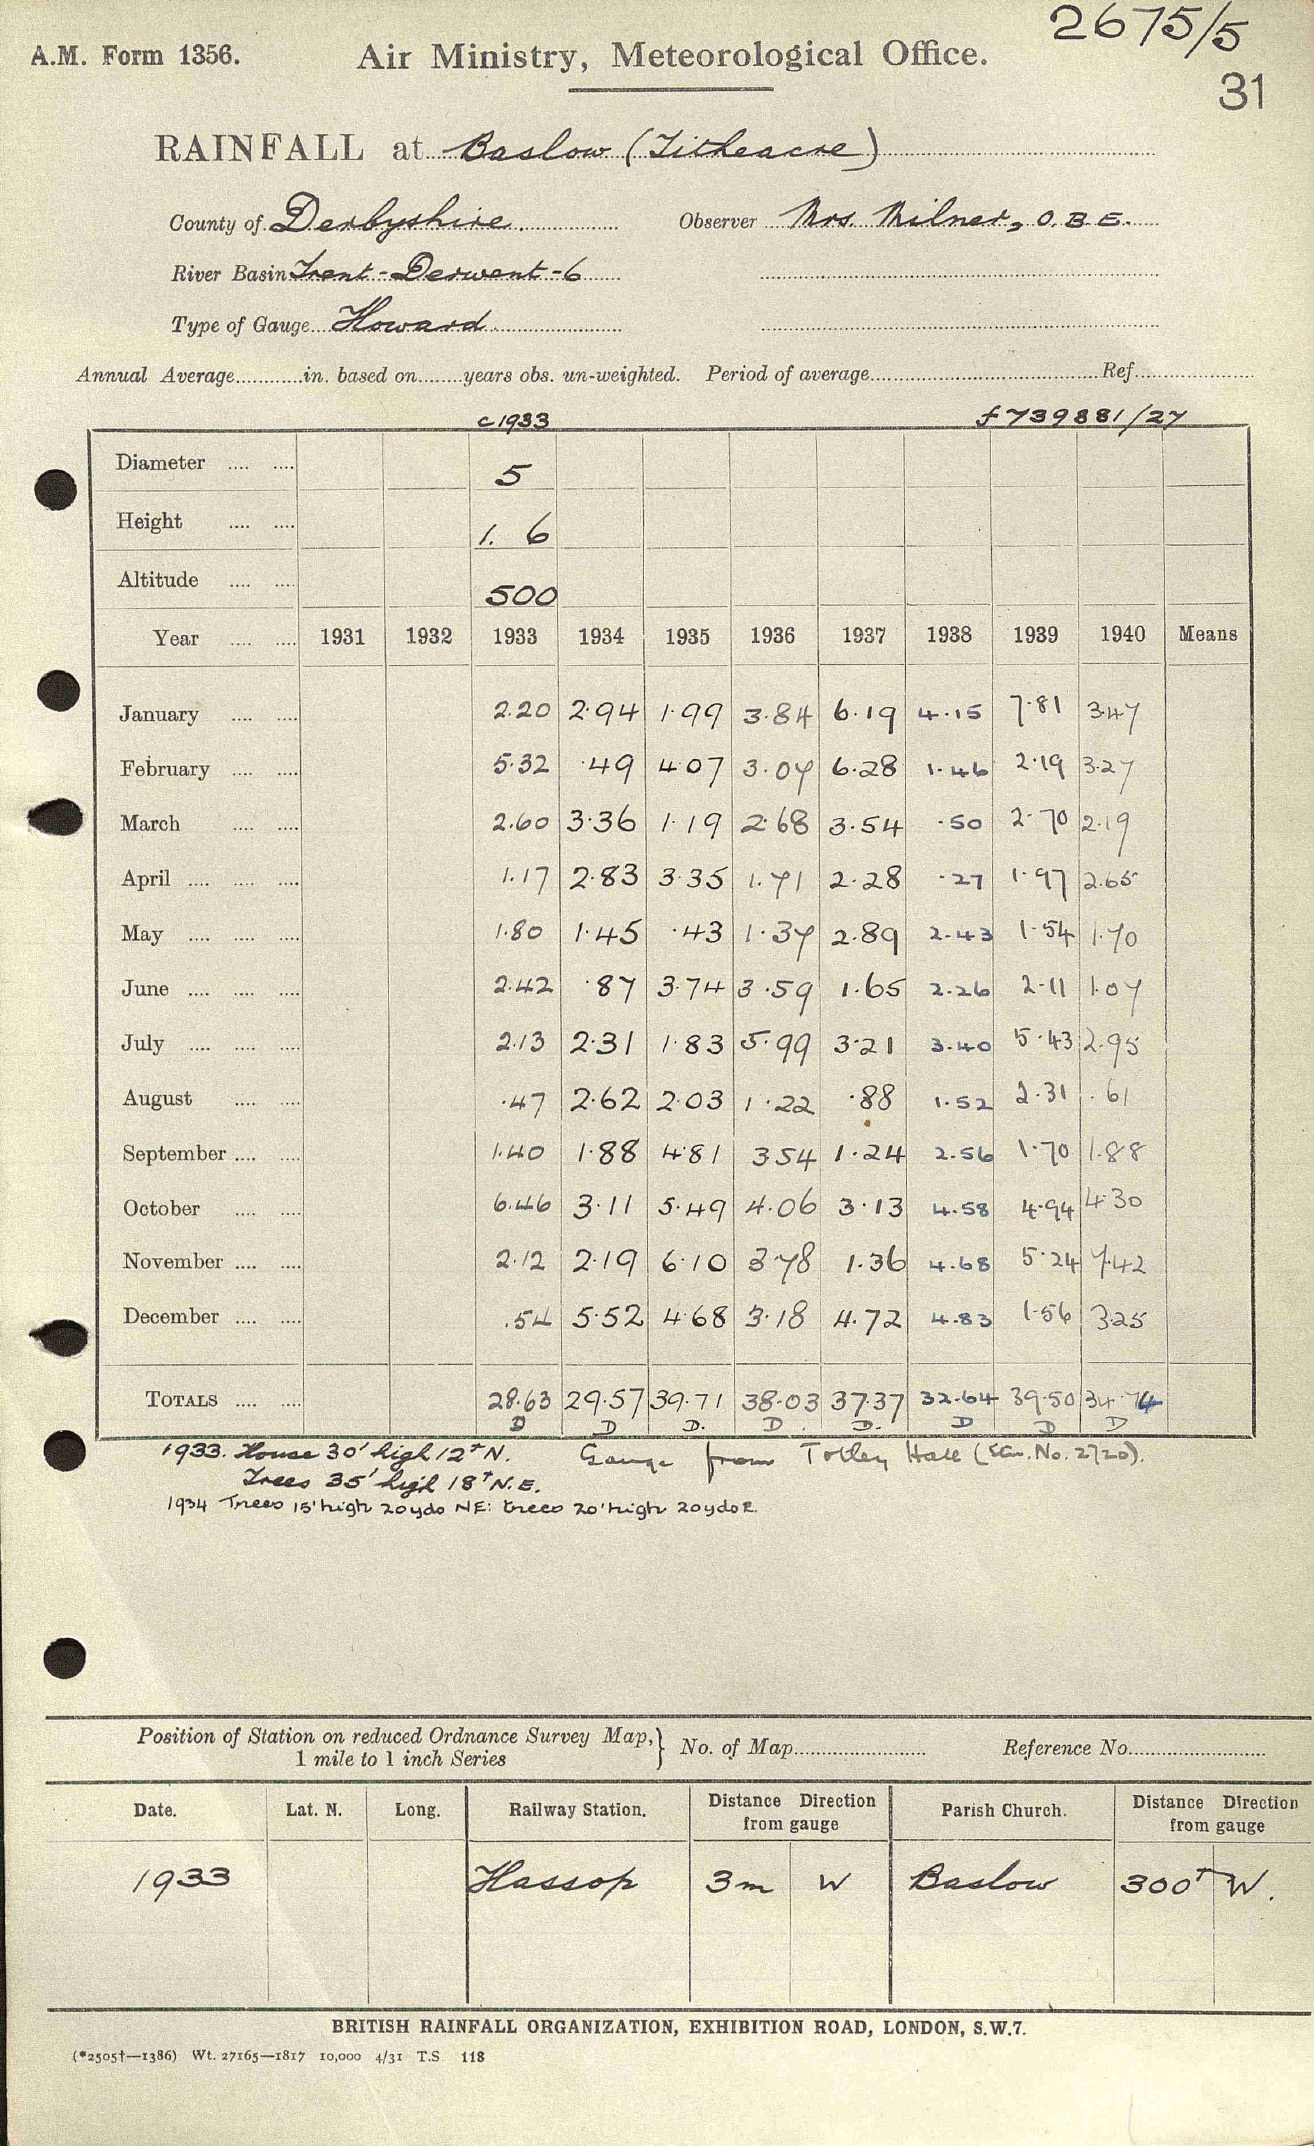 2675/5
A.M. Form 1356. Air Ministry, Meteorological Office.
31
RAINFALL at Baslow (Titheacre)
County of Derbyshire. Observer Mrs. Milner, O.B.E.
River Basin Trent - Derwent - 6
Type of Gauge Howard
Annual Average............in. based on........years obs. un-weighted. Period of average............ Ref............
c1933 f 739881/27
Diameter .... .... 5
Height .... .... 1. 6
Altitude .... .... 500
Year .... .... 1931 1932 1933 1934 1935 1936 1937 1938 1939 1940 Means
January .... .... 2.20 2.94 1.99 3.84 6.19 4.15 7.81 3.47
February .... .... 5.32 .49 4.07 3.07 6.28 1.46 2.19 3.27
March .... .... 2.60 3.36 1.19 2.68 3.54 .50 2.70 2.19
April .... .... .... 1.17 2.83 3.35 1.71 2.28 .27 1.97 2.65
May .... .... .... 1.80 1.45 .43 1.37 2.89 2.43 1.54 1.70
June .... .... .... 2.42 .87 3.74 3.59 1.65 2.26 2.11 1.07
July .... .... .... 2.13 2.31 1.83 5.99 3.21 3.40 5.43 2.95
August .... .... .47 2.62 2.03 1.22 .88 1.52 2.31 .61
September .... .... 1.40 1.88 4.81 3.54 1.24 2.56 1.70 1.88
October .... .... 6.46 3.11 5.49 4.06 3.13 4.58 4.94 4.30
November .... .... 2.12 2.19 6.10 3.78 1.36 4.68 5.24 7.42
December .... .... .54 5.52 4.68 3.18 4.72 4.83 1.56 3.25
TOTALS .... .... 28.63 29.57 39.71 38.03 37.37 32.64 39.50 34.74
D D D. D. D. D D D
1933. House 30' high 12† N. Gauge from Totley Hall (Can. No. 2720).
Trees 35' high 18† N.E.
1934 Trees 15' high 20yds NE: trees 20' high 20yds E.
Position of Station on reduced Ordnance Survey Map,} No. of Map............ Reference No............
1 mile to 1 inch Series
Date. Lat. N. Long. Railway Station. Distance Direction from gauge Parish Church. Distance Direction from gauge
1933 Hassop 3m W Baslow 300† W.
BRITISH RAINFALL ORGANIZATION, EXHIBITION ROAD, LONDON, S.W.7.
(*2505†—1386) Wt. 27165—1817 10,000 4/31 T.S 118